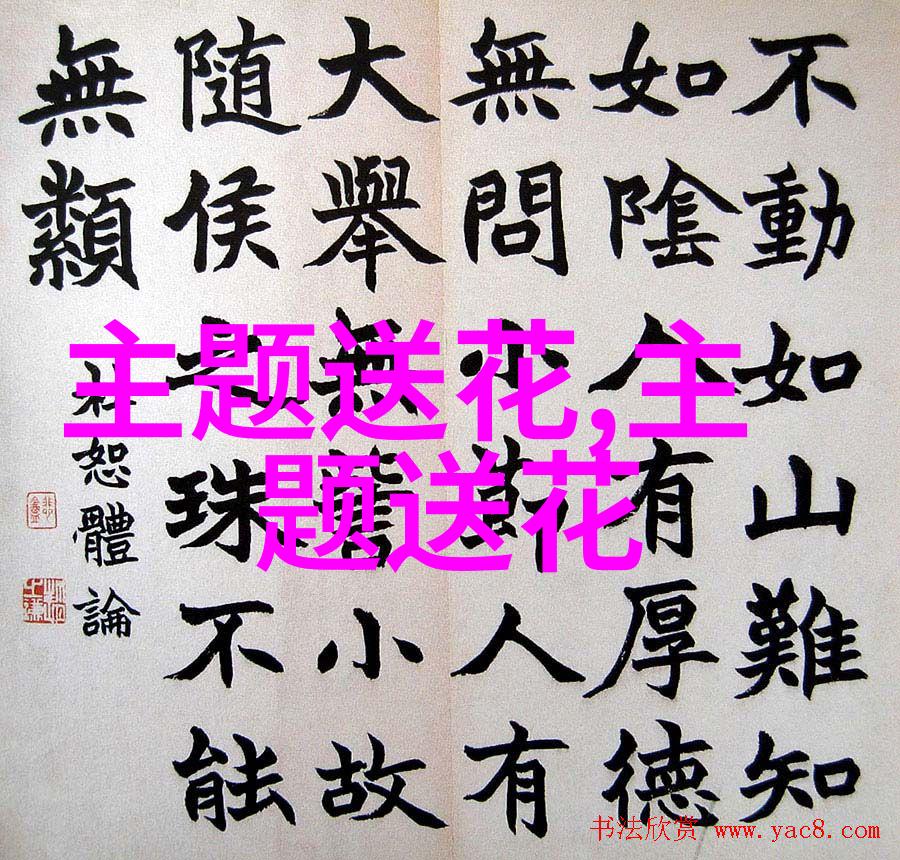 不動如山難知
如陰人有厚德
無問小節人有
大舉無小故
隨侯之珠不能
無纇
恕體論
主题送花,主
题送花
书法欣赏 www.yac8.com